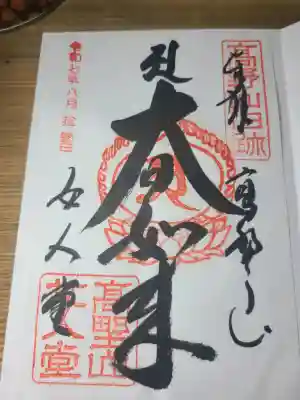 奉拝
高野山
高野山旧跡
大日如来
女人堂
高野山
女人堂
令和七年八月